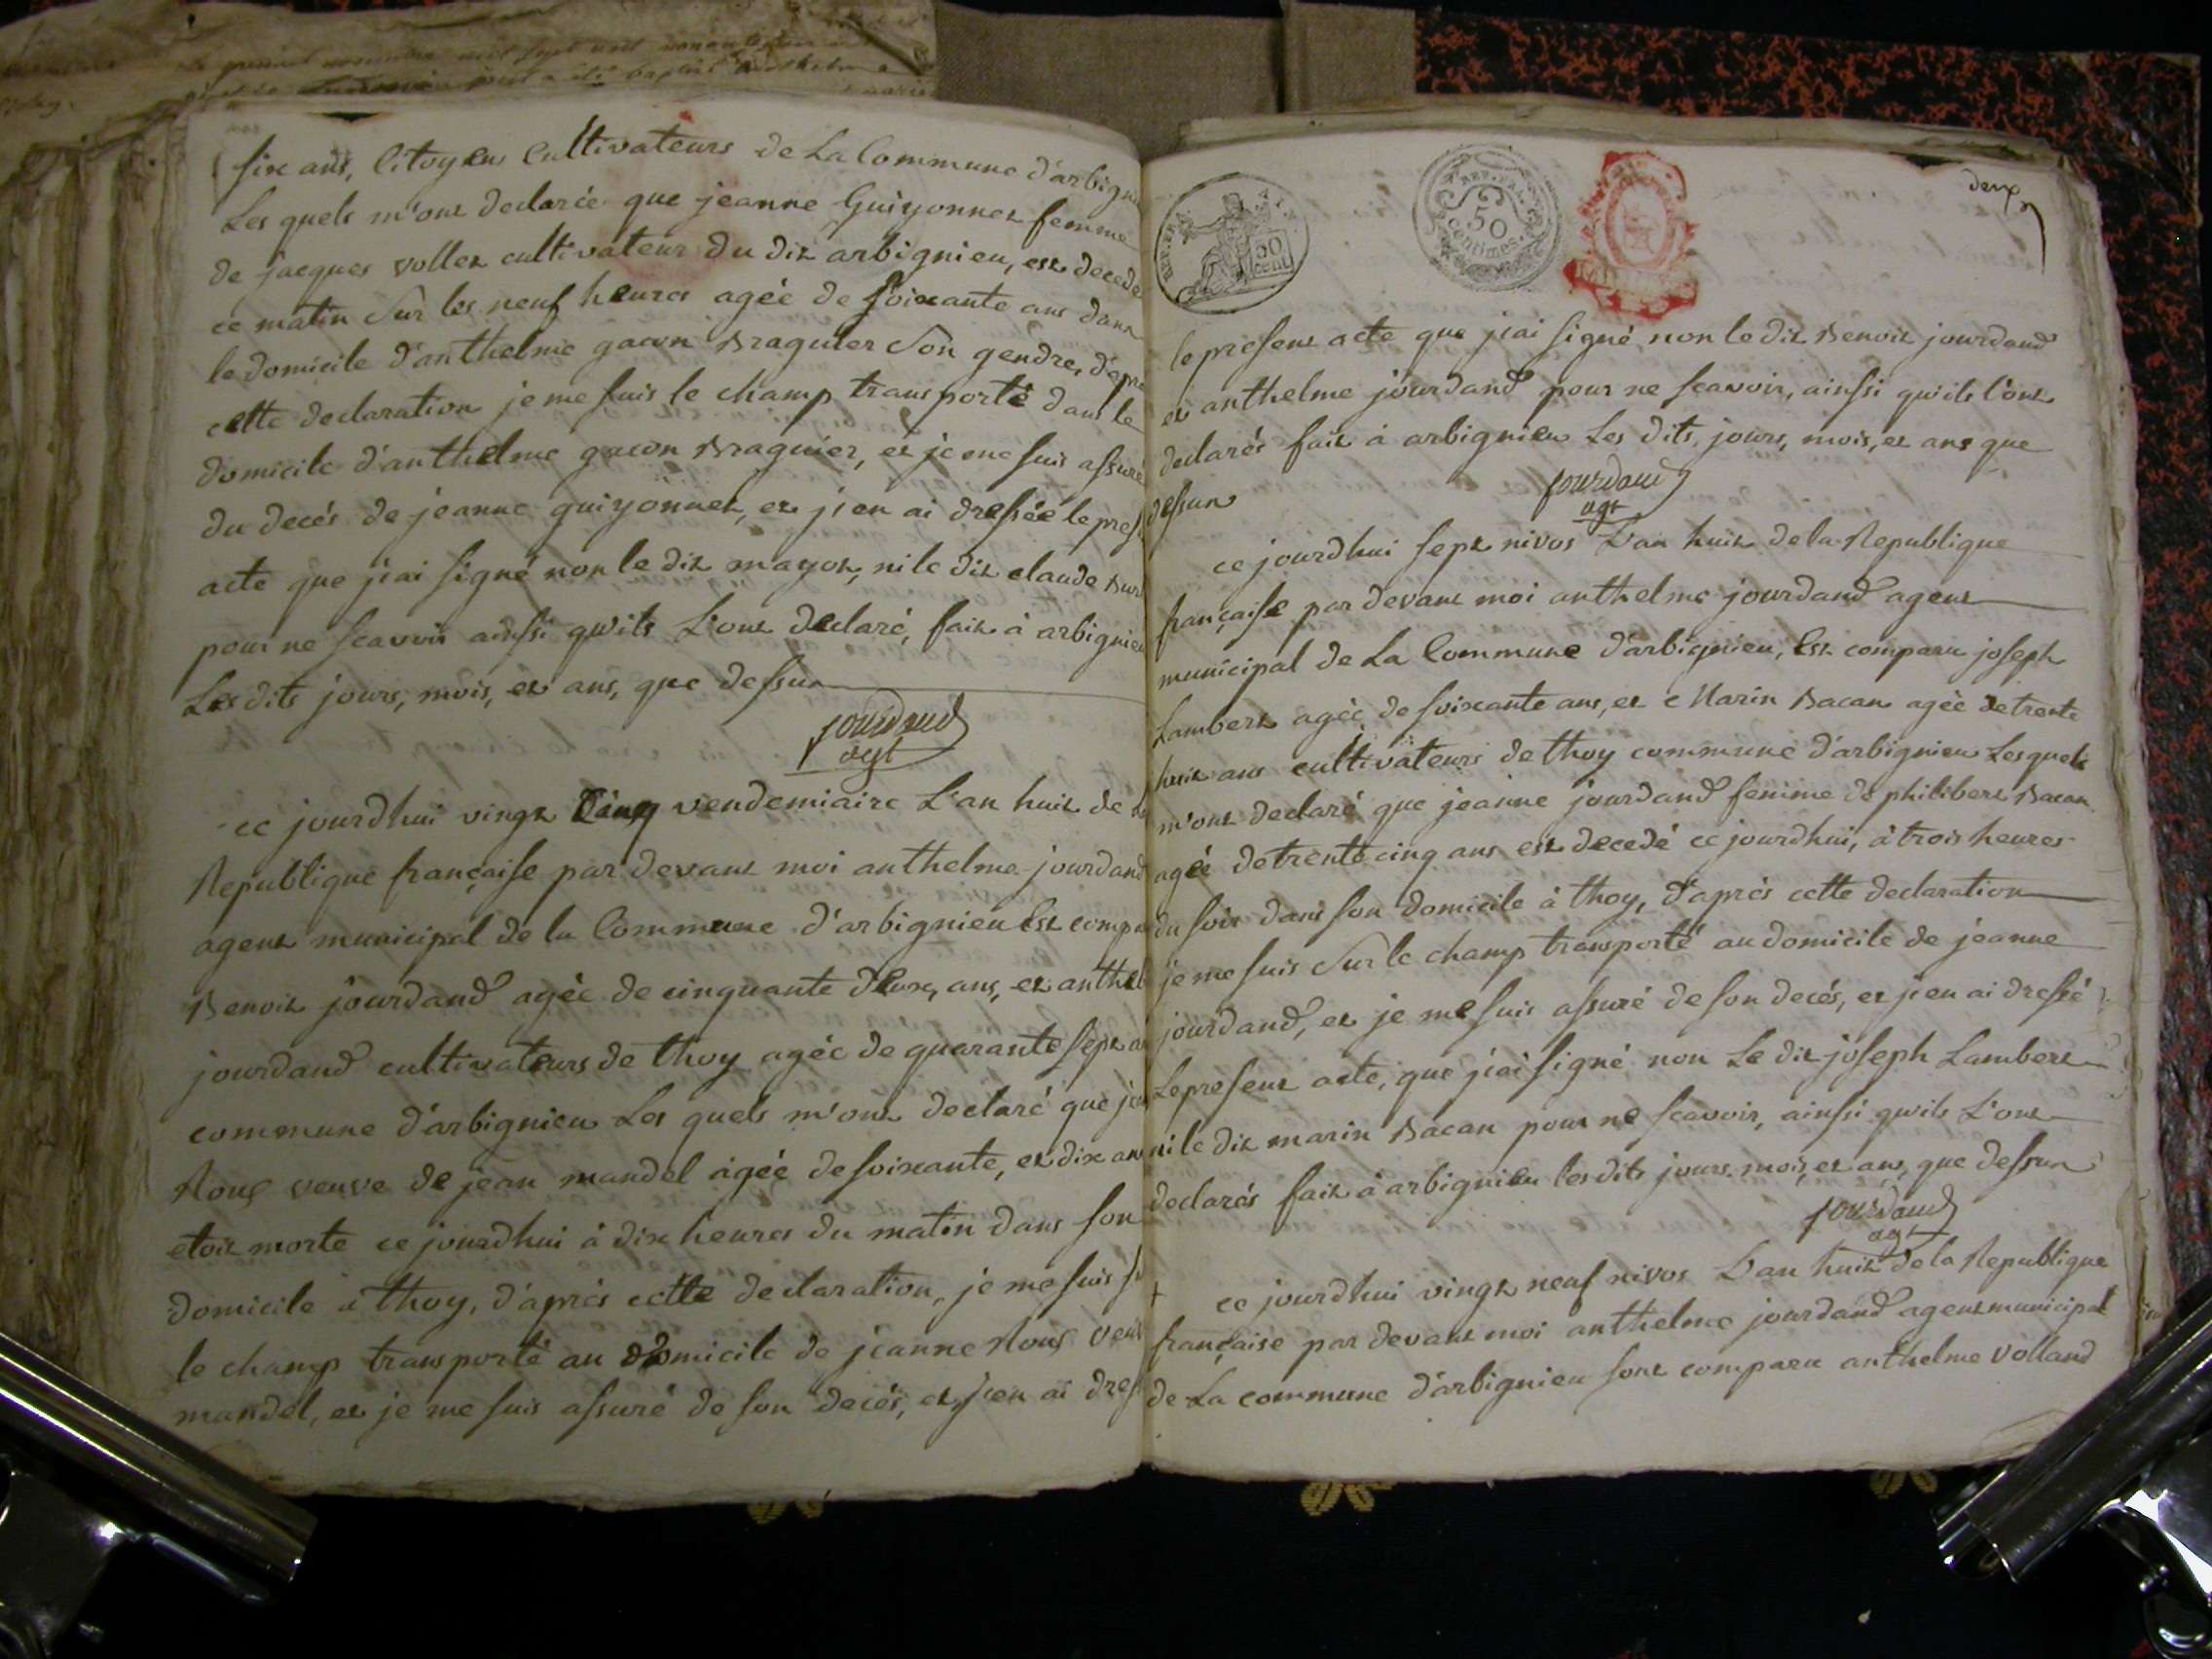 six ans, Citoyens Cultivateurs de La Commune d'arbigni
Les quels m'ont declarée que jeanne Guiyonnet femme
de jacques vollet cultivateur du dit arbignieu, est decede
ce matin sur les neuf heures agée de soixante ans dans
le domicile d'anthelme gacon Braguier son gendre, d'apre
cette declaration je me suis le champ transporté dans le
domicile d'anthelme gacon Braguier, et je me suis assuré
du decés de jeanne guiyonnet, et j'en ai dressée le pres
acte que j'ai signé non le dit mayot, ni le dit claude
pour ne scavoir ainsi qu'ils L'ont declaré, fait à arbignieu
Les dits jours, mois, et ans, que dessus
jourdand
agt
ce jourd'hui vingt Cinq vendemiaire L'an huit de
Republique française par devant moi anthelme jourdand
agent municipal de la Commune d'arbignieu Est compa
Benoit jourdand agée de cinquante deux, ans, et anthel
jourdand cultivateurs de thoy agée de quarante sept
commune d'arbignieu Les quels m'ont declaré que
Roux veuve de jean mandel agée de soixante, et dix ans
etoit morte ce jourd'hui à dix heures du matin dans son
domicile à thoy, d'après cette declaration, je me suis
le champ transporté au domicile de jeanne Roux veuv
mandel, et je me suis assuré de son decés, et j'en ai dres
REP. FRA.
50
cent
REP. FRA.
50
centimes.
deux
le present acte que j'ai signé non le dit Benoit jourdand
et anthelme jourdand pour ne scavoir, ainsi qu'ils l'ont
declarés fait à arbignieu Les dits, jours, mois, et ans que
dessus
jourdand
agt
ce jourd'hui sept nivos L'an huit de la Republique
française par devant moi anthelme jourdand agent
municipal de La Commune d'arbignieu, Est comparu joseph
Lambert agée de soixante ans, et Marin Bacan agée de trente
huit ans cultivateurs de thoy commune d'arbignieu Lesquels
m'ont declaré que jeanne jourdand femme de philibert Bacan
agée de trente cinq ans est decedé ce jourd'hui, à trois heures
du soir dans son domicile à thoy, d'après cette declaration
je me suis sur le champ transporté au domicile de jeanne
jourdand, et je me suis assuré de son decés, et j'en ai dressé
Le present acte, que j'ai signé non Le dit joseph Lambert
ni le dit marin Bacan pour ne scavoir, ainsi qu'ils L'ont
declarés fait à arbignieu les dits jours mois, et ans, que dessus
jourdand
agt
+ ce jourd'hui vingt neuf nivos L'an huit de la Republique
française par devant moi anthelme jourdand agent municipal
de La commune d'arbignieu sont comparu anthelme volland